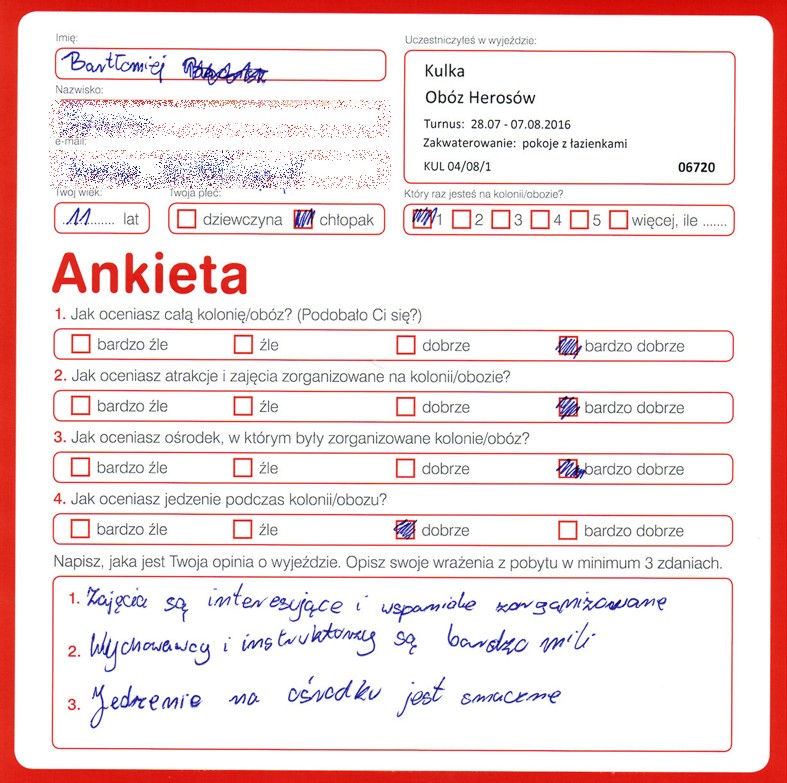 Imię:
Bartłomiej
Uczestniczyłeś w wyjeździe:
Kulka
Obóz Herosów
Turnus: 28.07 - 07.08.2016
Zakwaterowanie: pokoje z łazienkami
KUL 04/08/1 06720
Nazwisko:
e-mail:
Twój wiek:
11 lat
Twoja płeć:
dziewczyna chłopak
Który raz jesteś na kolonii/obozie?
1 2 3 4 5 więcej, ile .......
Ankieta
1. Jak oceniasz całą kolonię/obóz? (Podobało Ci się?)
bardzo źle źle dobrze bardzo dobrze
2. Jak oceniasz atrakcje i zajęcia zorganizowane na kolonii/obozie?
bardzo źle źle dobrze bardzo dobrze
3. Jak oceniasz ośrodek, w którym były zorganizowane kolonie/obóz?
bardzo źle źle dobrze bardzo dobrze
4. Jak oceniasz jedzenie podczas kolonii/obozu?
bardzo źle źle dobrze bardzo dobrze
Napisz, jaka jest Twoja opinia o wyjeździe. Opisz swoje wrażenia z pobytu w minimum 3 zdaniach.
1. Zajęcia są interesujące i wspaniale zorganizowane
2. Wychowawcy i instruktorzy są bardzo mili
3. Jedzenie na ośrodku jest smaczne